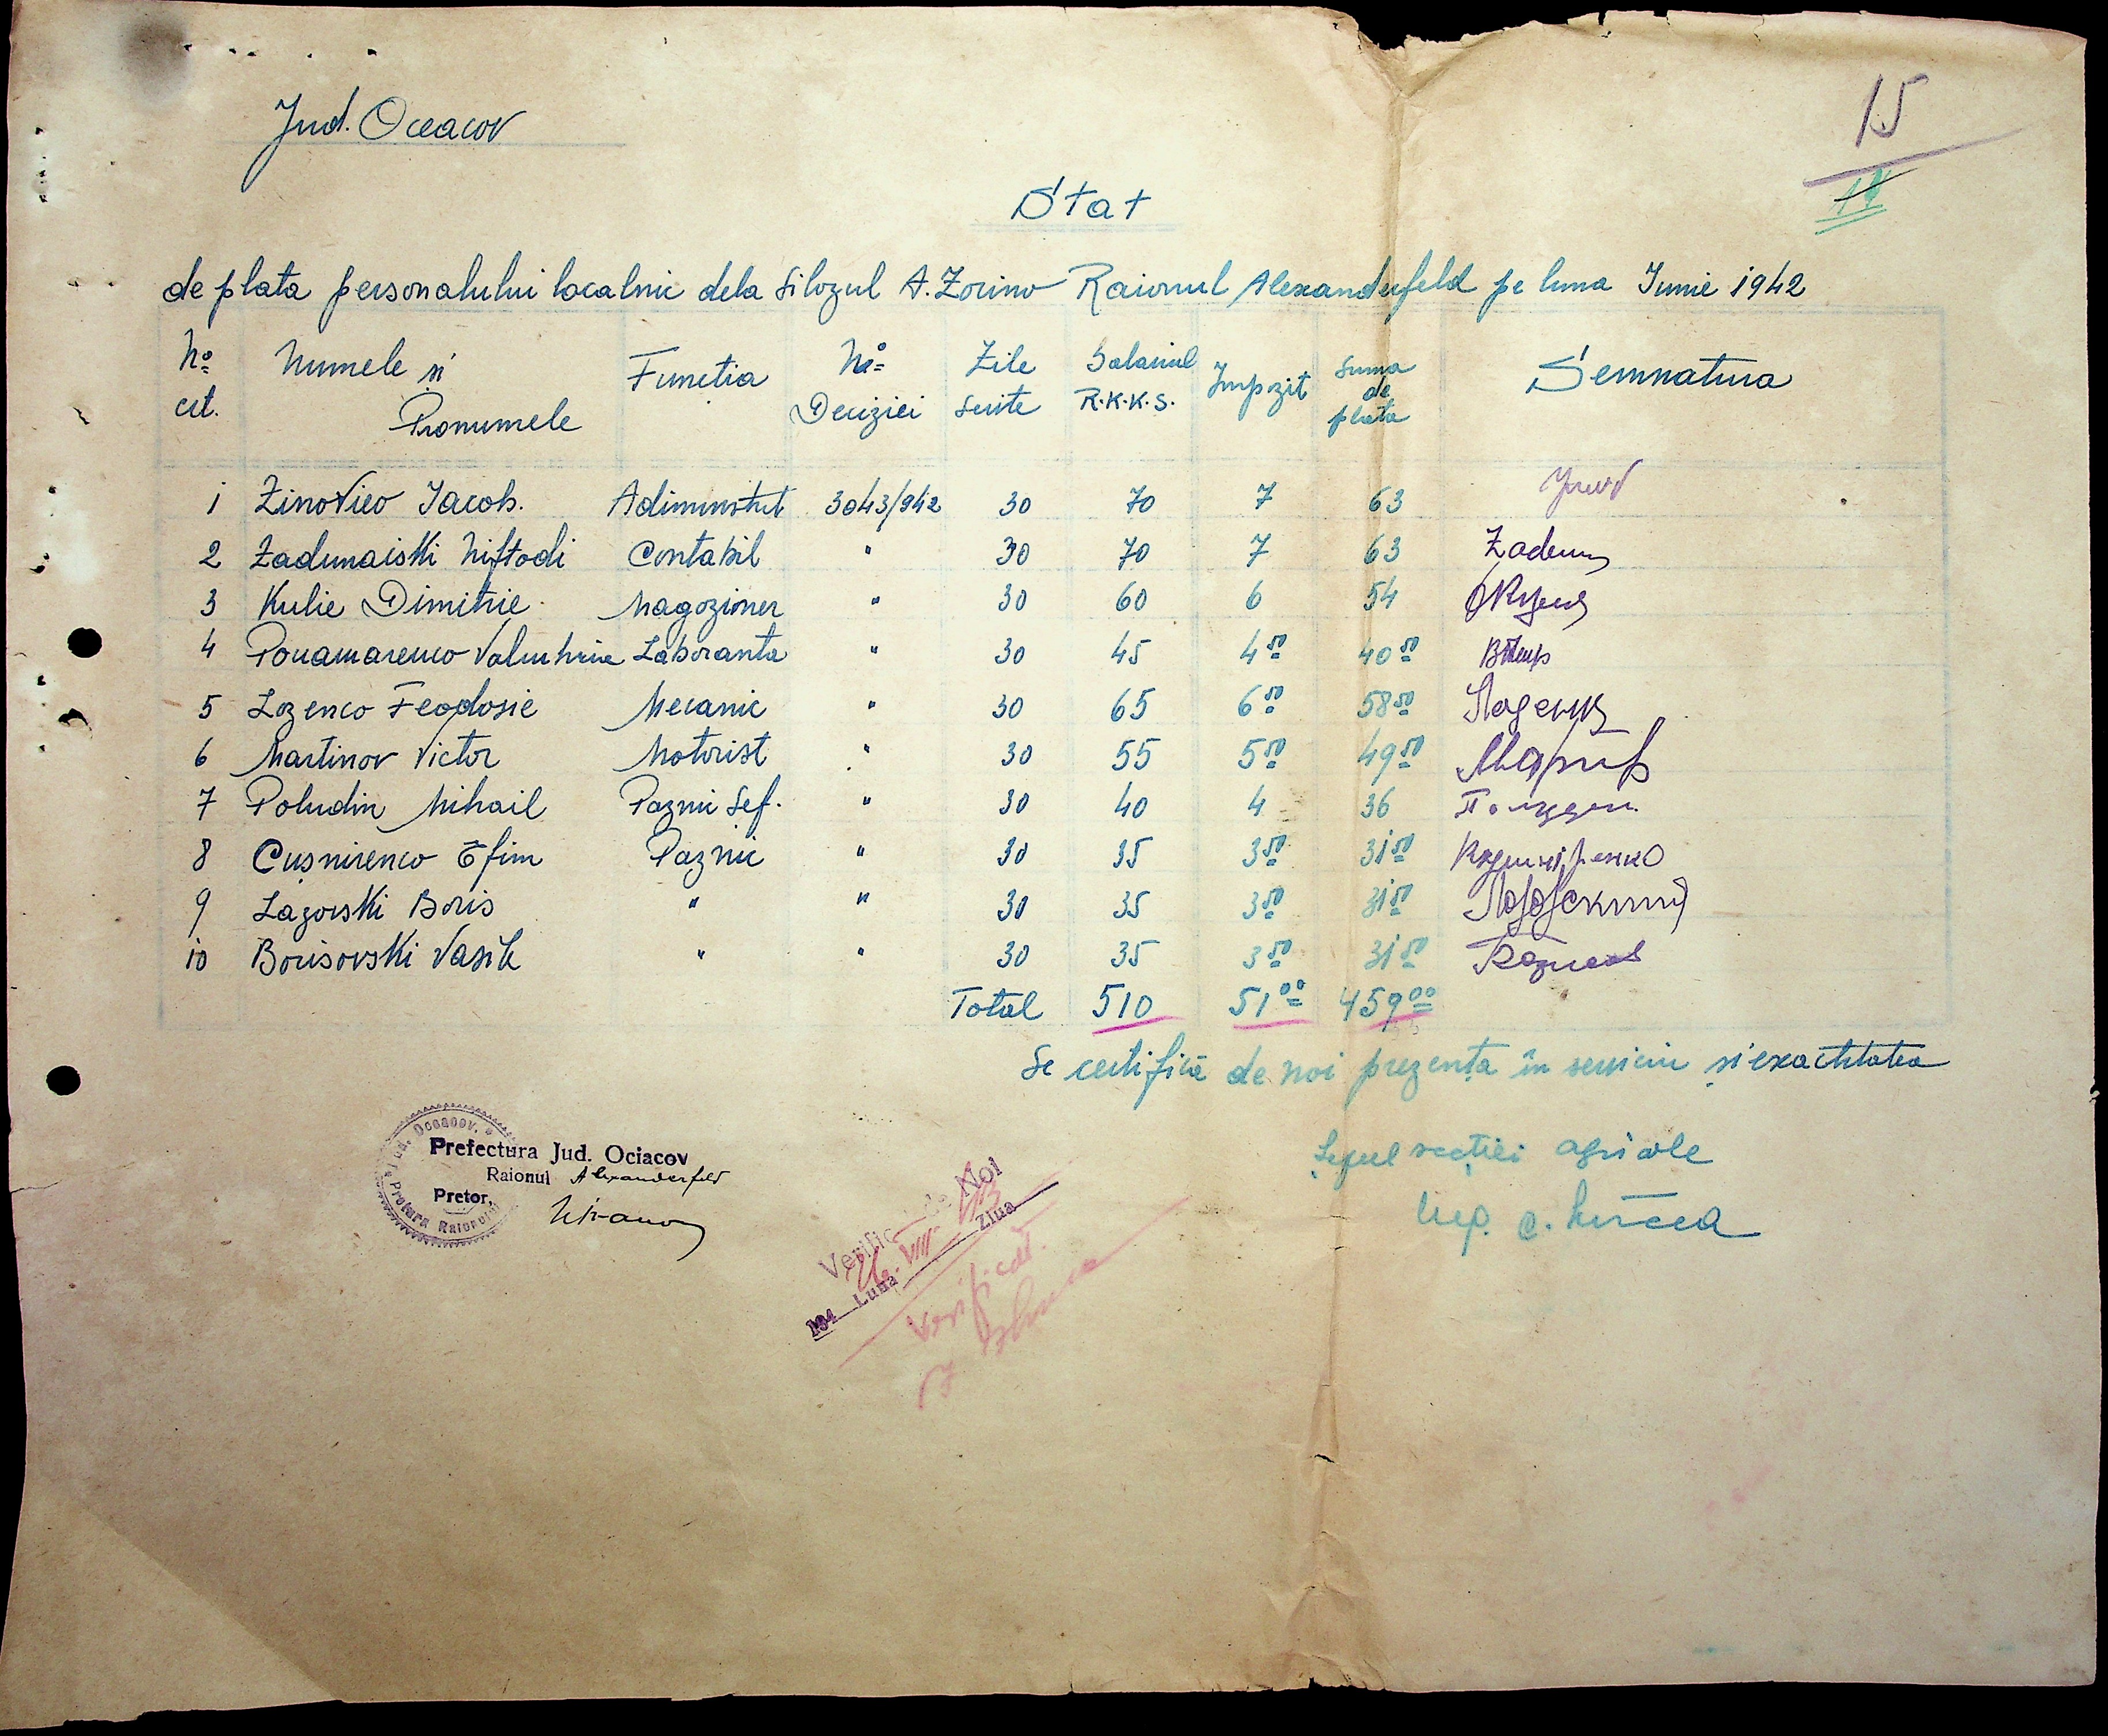 15
Jud. Oceacov
Stat
de plata personalului localnic dela silozul A. Zorino Raionul Alexanderfeld pe luna Iunie 1942
No crt. Numele si Pronumele Functia No Deciziei Zile servite Salariul R.K.K.S. Impozit Suma de plata Semnatura
1 Zinoviev Iacob. Administrat 3043/942 30 70 7 63
2 Zadunaiski Niftodi Contabil " 30 70 7 63 Zadun
3 Kulic Dimitrie Magoziner " 30 60 6 54
4 Ponamarenco Laboranta " 30 45 4 50 40 50
5 Lozenco Feodosie Mecanic " 30 65 6 50 58 50
6 Martinov Victor Motorist " 30 55 5 50 49 50
7 Poludin Mihail Paznic Sef. " 30 40 4 36
8 Cușnirenco Efim Paznic " 30 35 3 50 31 50 Кушниренко
9 Lazovski Boris " " 30 35 3 50 31 50
10 Borisovski Vasile " " 30 35 3 50 31 50
Total 510 51 00 459 00
Se certifică de noi prezența în serviciu și exactitatea
Șeful secției agricole
Ing. C. Mircea
Jud. Oceacov.
Pretura Raionului
Prefectura Jud. Ociacov
Raionul Alexanderfeld
Pretor,
Verificat de Noi
194 Luna VIII Ziua
Verificat